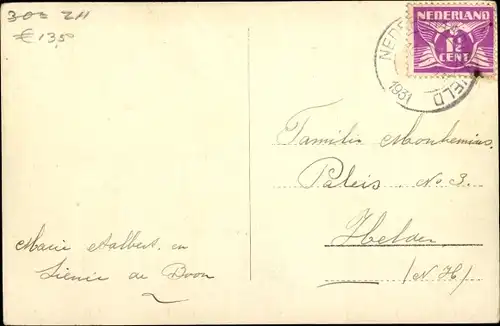 302 ZH
€ 13,50
NEDERLAND
1½
CENT
1931
Familie Monhemius.
Paleis No 3.
Helder
(N. H.)
Marie Aalbert en
Lienie de Boon